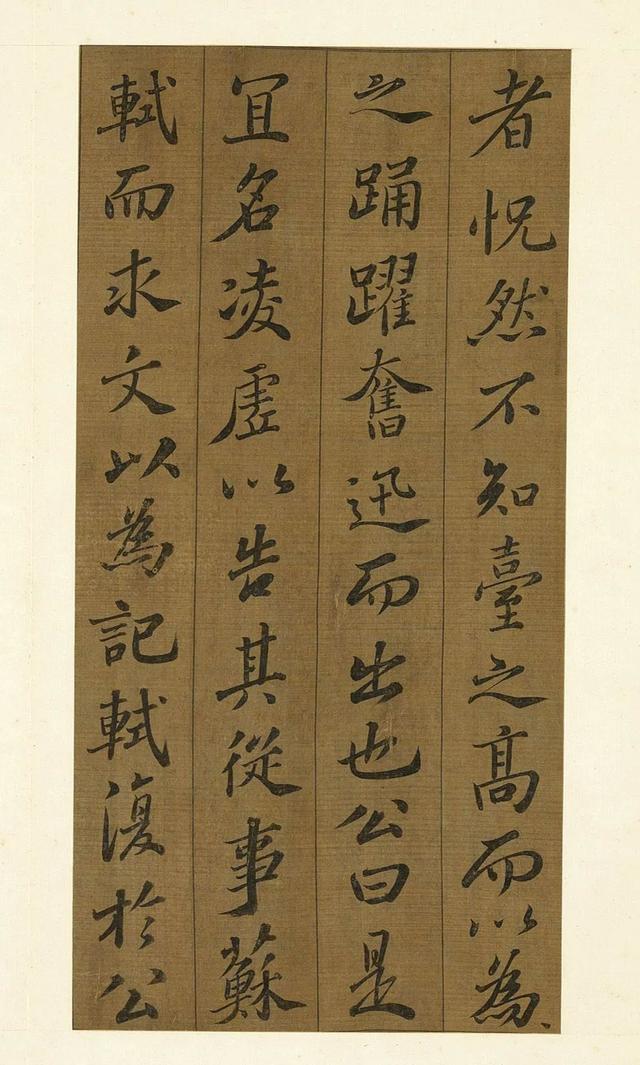 者怳然不知臺之髙而以為
之踊躍奮迅而出也公曰是
冝名凌虚以告其從事蘇
軾而求文以為記軾復於公